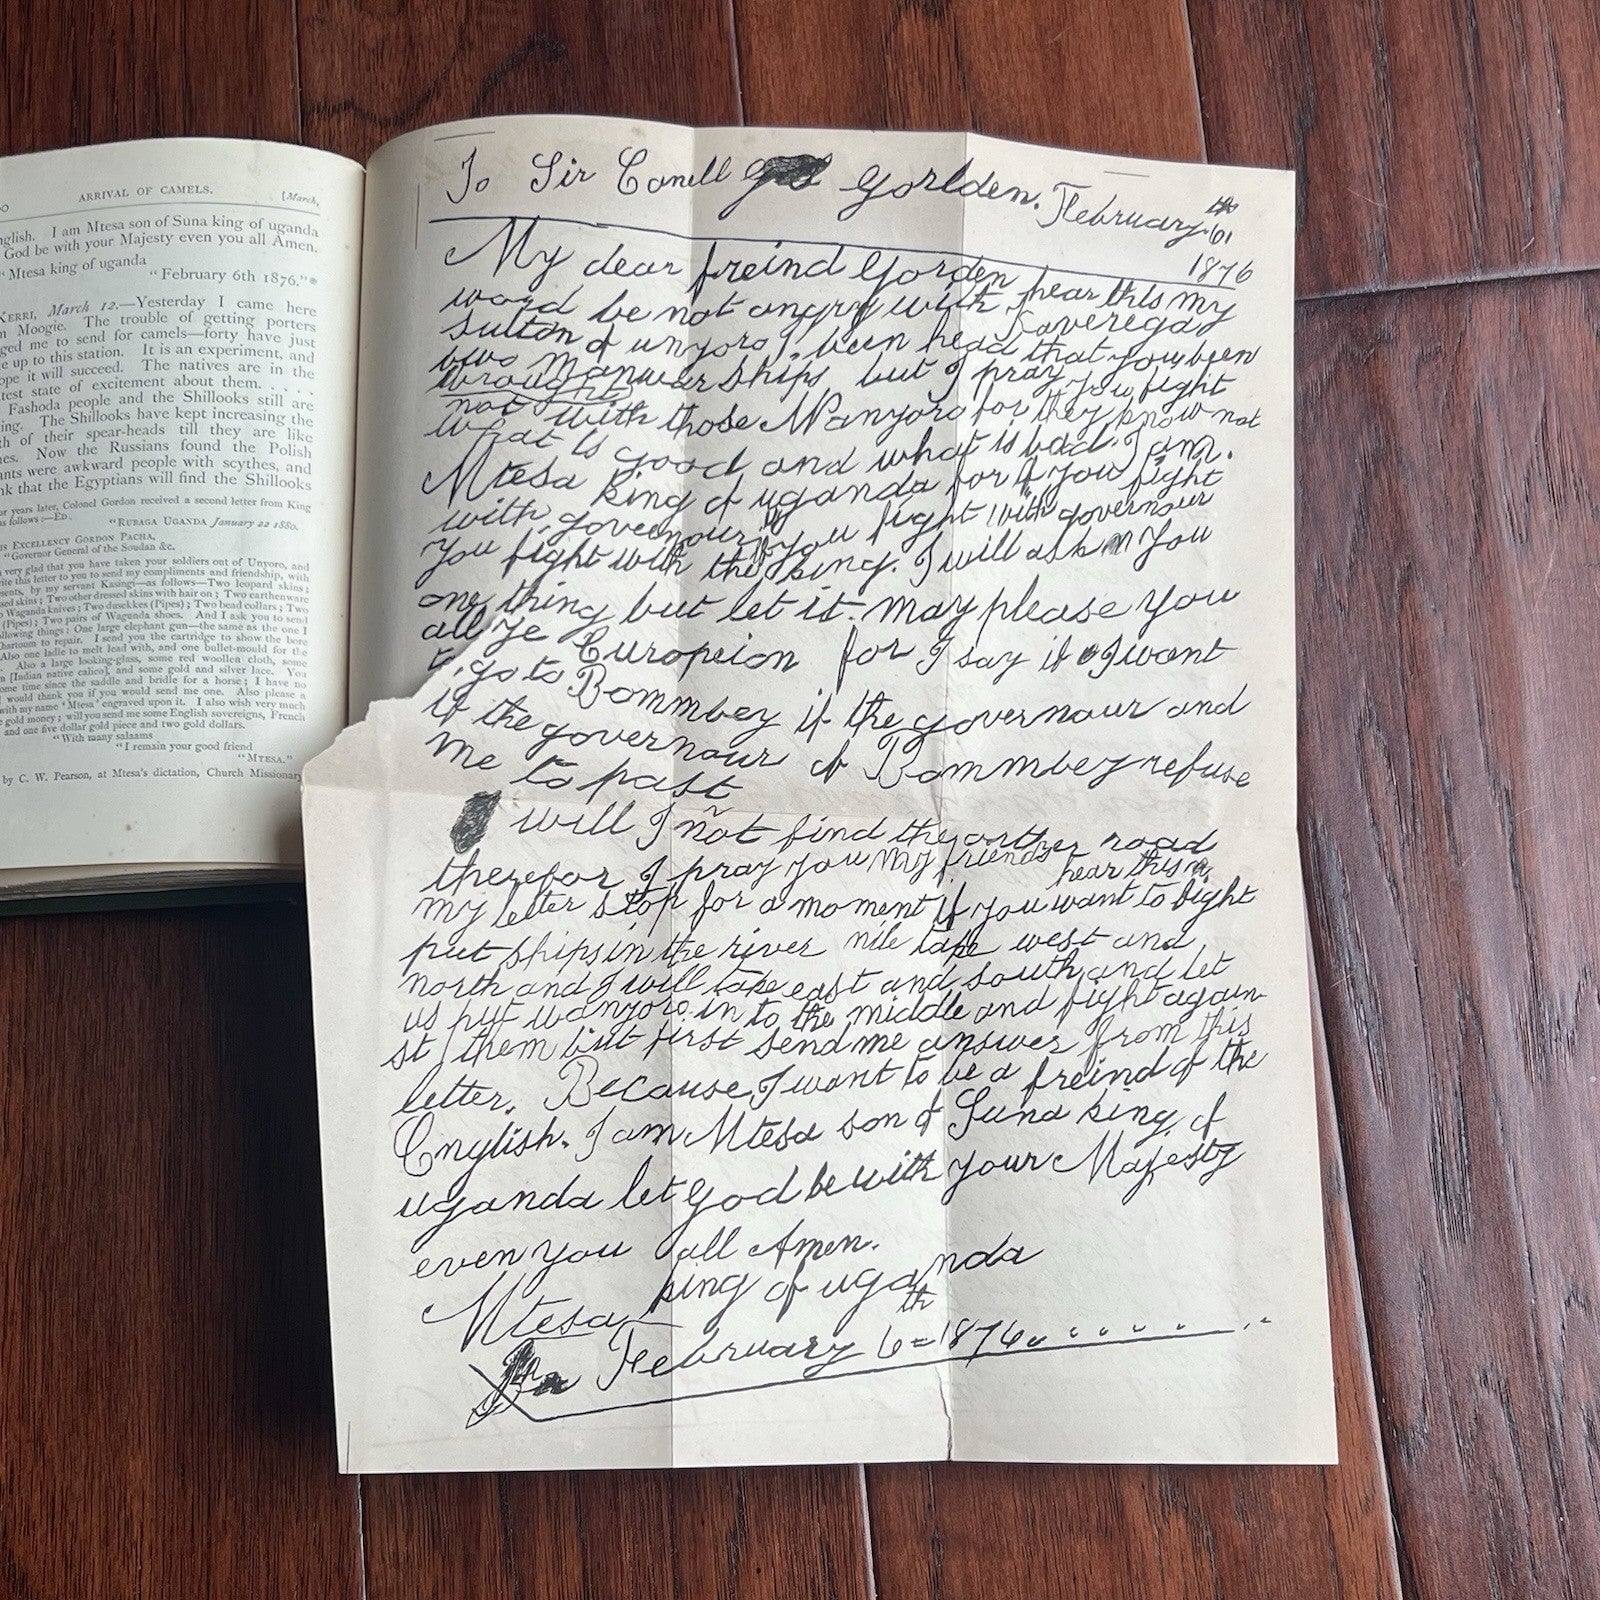 ARRIVAL OF CAMELS. [March,
nglish. I am Mtesa son of Suna king of uganda
God be with your Majesty even you all Amen.
"Mtesa king of uganda
"February 6th 1876."*
KERRI, March 12.—Yesterday I came here
m Moogie. The trouble of getting porters
ged me to send for camels—forty have just
e up to this station. It is an experiment, and
ope it will succeed. The natives are in the
test state of excitement about them. . . .
Fashoda people and the Shillooks still are
ing. The Shillooks have kept increasing the
th of their spear-heads till they are like
hes. Now the Russians found the Polish
ants were awkward people with scythes, and
nk that the Egyptians will find the Shillooks
ur years later, Colonel Gordon received a second letter from King
as follows:—Ed.
"RUBAGA UGANDA January 22 1880.
IS EXCELLENCY GORDON PACHA,
"Governor General of the Soudan &c.
very glad that you have taken your soldiers out of Unyoro, and
rite this letter to you to send my compliments and friendship, with
sents, by my servant Kasingi—as follows—Two leopard skins;
sed skins; Two other dressed skins with hair on; Two earthenware
) Waganda knives; Two dusekkes (Pipes); Two bead collars; Two
(Pipes); Two pairs of Wagunda shoes. And I ask you to send
ollowing things: One large elephant gun—the same as the one I
hartoum to repair. I send you the cartridge to show the bore
Also one ladle to melt lead with, and one bullet-mould for the
Also a large looking-glass, some red woollen cloth, some
n [Indian native calico], and some gold and silver lace. You
ome time since the saddle and bridle for a horse; I have no
I would thank you if you would send me one. Also please a
with my name 'Mtesa' engraved upon it. I also wish very much
e gold money; will you send me some English sovereigns, French
and one five dollar gold piece and two gold dollars.
"With many salaams
"I remain your good friend
"MTESA."
by C. W. Pearson, at Mtesa's dictation, Church Missionary
To Sir Conell Gorlden. February 6th
1876
My dear freind Gorden hear this my
word be not angry with Kaverega
sultan of unyoro I been head that you been
brought two manwar ships but I pray you fight
not with those Wanyoro for they know not
what is good and what is bad. I am.
Mtesa king of uganda for if you fight
with governour if you fight with governour
you fight with the king. I will ask you
one thing but let it may please you
all ye Europeion for I say if I want
to go to Bommbey if the governour and
if the governour of Bommbey refuse
me to past
will I not find the orther road
therefor I pray you my friends hear this
my letter stop for a moment if you want to fight
put ships in the river nile take west and
north and I will take east and south and let
us put wanyoro in to the middle and fight again-
st them but first send me answer from this
letter. Because I want to be a freind of the
English. I am Mtesa son of Suna king of
uganda let God be with your Majesty
even you all Amen.
Mtesa king of uganda
February 6th 1876